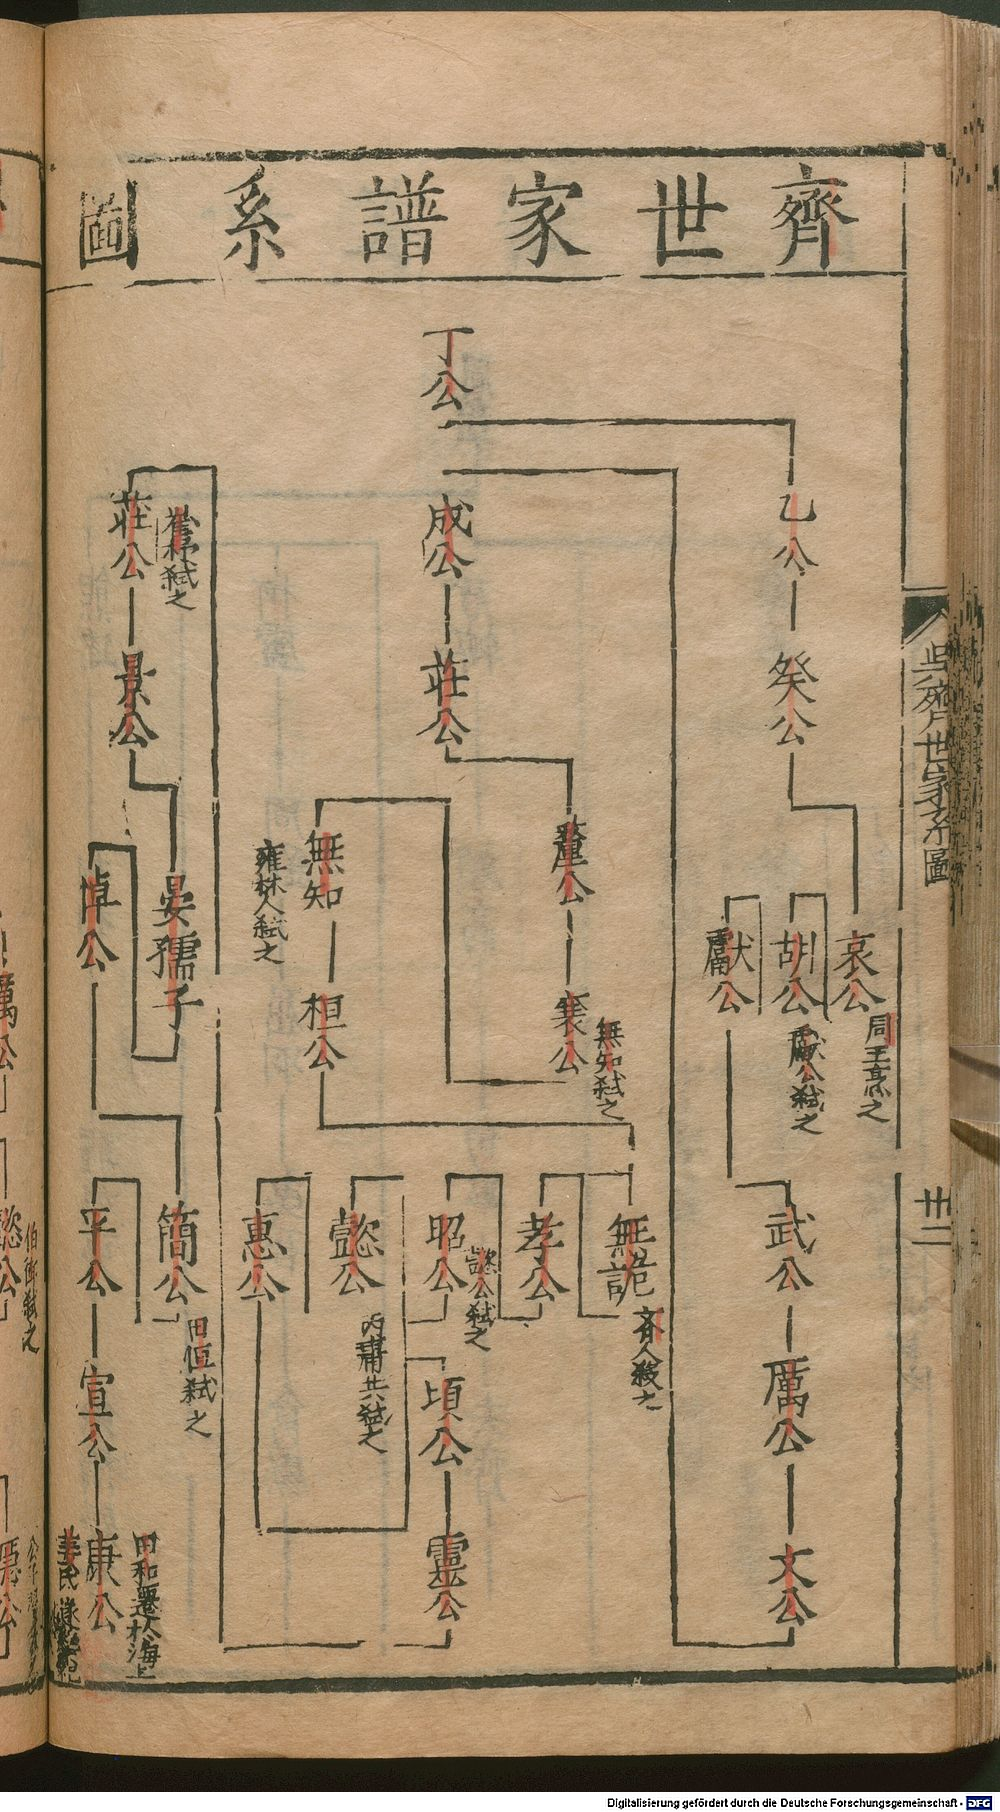 齊世家譜系圖
丁公
乙公
癸公
哀公
周王烹之
胡公
獻公弑之
獻公
武公
厲公
文公
成公
莊公
釐公
襄公
無知弑之
無知
雍林人弑之
桓公
無詭
齊人殺之
孝公
昭公
懿公弑之
懿公
丙庸共弑之
惠公
頃公
靈公
莊公
崔杼弑之
景公
晏孺子
悼公
簡公
田恒弑之
平公
宣公
康公
田和遷於海上
姜氏遂絕祀
吳齊世家系圖
卅二
厲公
懿公
伯御弑之
Digitalisierung gefördert durch die Deutsche Forschungsgemeinschaft - DFG